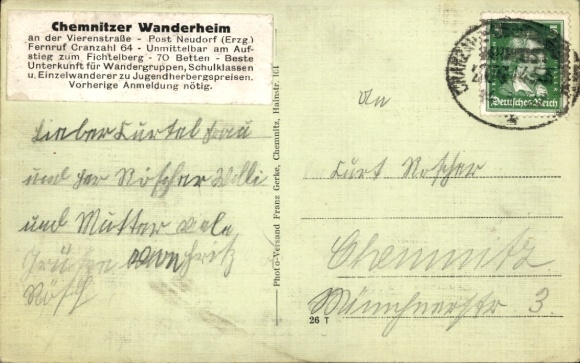 Chemnitzer Wanderheim
an der Vierenstraße - Post Neudorf (Erzg.)
Fernruf Cranzahl 64 - Unmittelbar am Auf-
stieg zum Fichtelberg - 70 Betten - Beste
Unterkunft für Wandergruppen, Schulklassen
u. Einzelwanderer zu Jugendherbergspreisen.
Vorherige Anmeldung nötig.
Lieber Kurtel
und Willi
und Mutter
Grüße von Fritz
Photo-Versand Franz Gerke, Chemnitz, Hainstr. 101
26 T
Deutsches Reich
An
Kurt Roscher
Chemnitz
Münchnerstr 3.